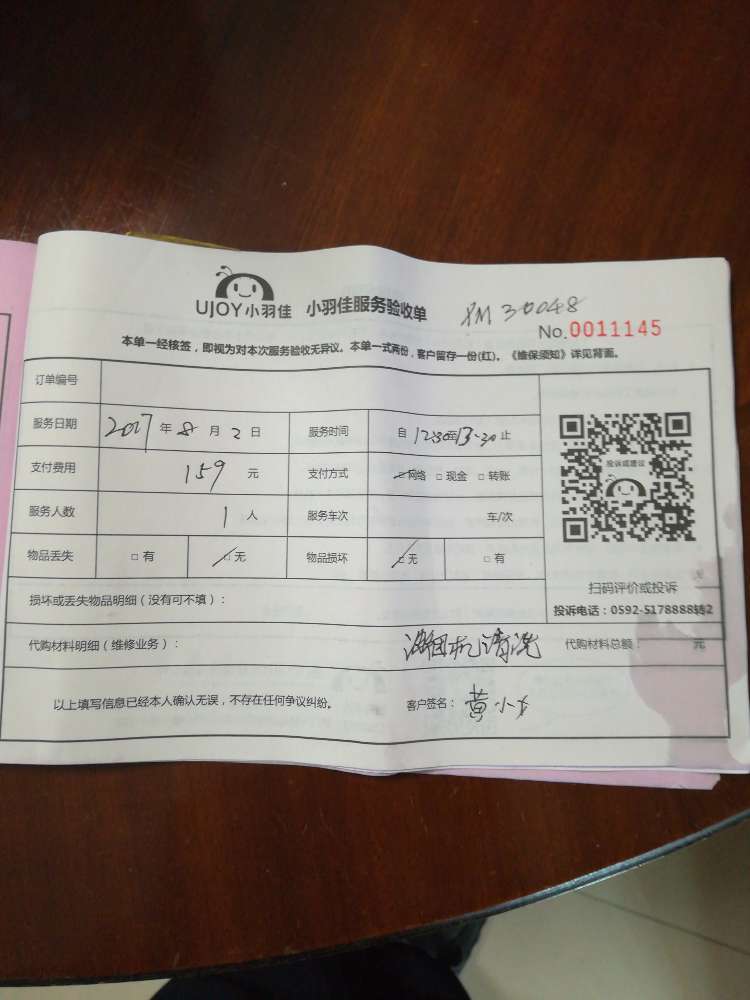 UJOY小羽佳 小羽佳服务验收单 PM 30048
No.0011145
本单一经核签，即视为对本次服务验收无异议。本单一式两份，客户留存一份(红)。《维保须知》详见背面。
订单编号
服务日期 2017 年 8 月 2 日 服务时间 自 12:30至13:30止
支付费用 159 元 支付方式 □网络 □现金 □转账
投诉或建议
服务人数 1 人 服务车次 车/次
物品丢失 □有 □无 物品损坏 □无 □有
扫码评价或投诉
损坏或丢失物品明细（没有可不填）：
投诉电话：0592-5178888转2
代购材料明细（维修业务）： 油烟机清洗 代购材料总额： 元
以上填写信息已经本人确认无误，不存在任何争议纠纷。 客户签名： 黄小